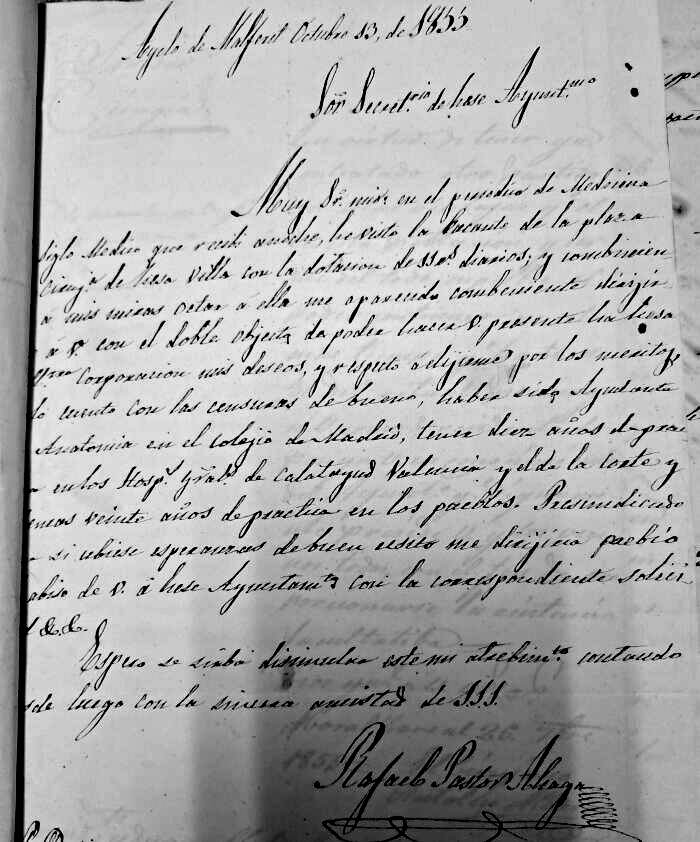 Ayelo de Malferit Octubre 13, de 1855
Sor. Secret.rio de hese Ayunt.mo
Muy Sr. mio: en el periodico de Medicina
Siglo Medico que recibi anoche, he visto la bacante de la plaza
Ciruj.o de hesa Villa con la dotacion de 11 r.s diarios; y combinien
a mis miras octar á ella me aparecido combeniente dirijir
á V. con el doble objeto de poder hacer V. presente ha hesa
Corporacion mis deseos, y respecto á dijirme por los meritos,
lo cuento con las censuras de bueno, haber sido Ayudante
Anatomia en el colejio de Madrid, tener diez años de prac
en los Hosp.s Grals. de Calatayud Valencia y el de la Corte y
veinte años de practica en los pueblos.
si ubiese esperanzas de buen ecsito me dirijiria paebio
abiso de V. á hese Ayuntam.to con la correspondiente solici
&.&.
Espero se sirba disimular este mi atrebim.to contando
sde luego con la sincera amistad de S.S.S.
Rafael Pastor Aliaga